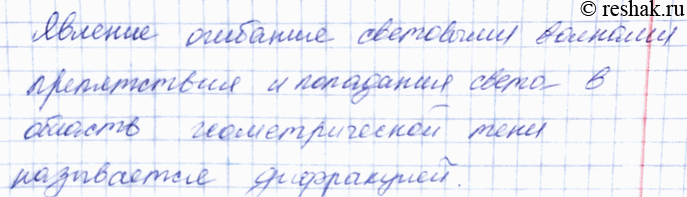 reshak.ru
Явление огибание световыми волнами
препятствия и попадания света в
область геометрической тени
называется дифракцией.